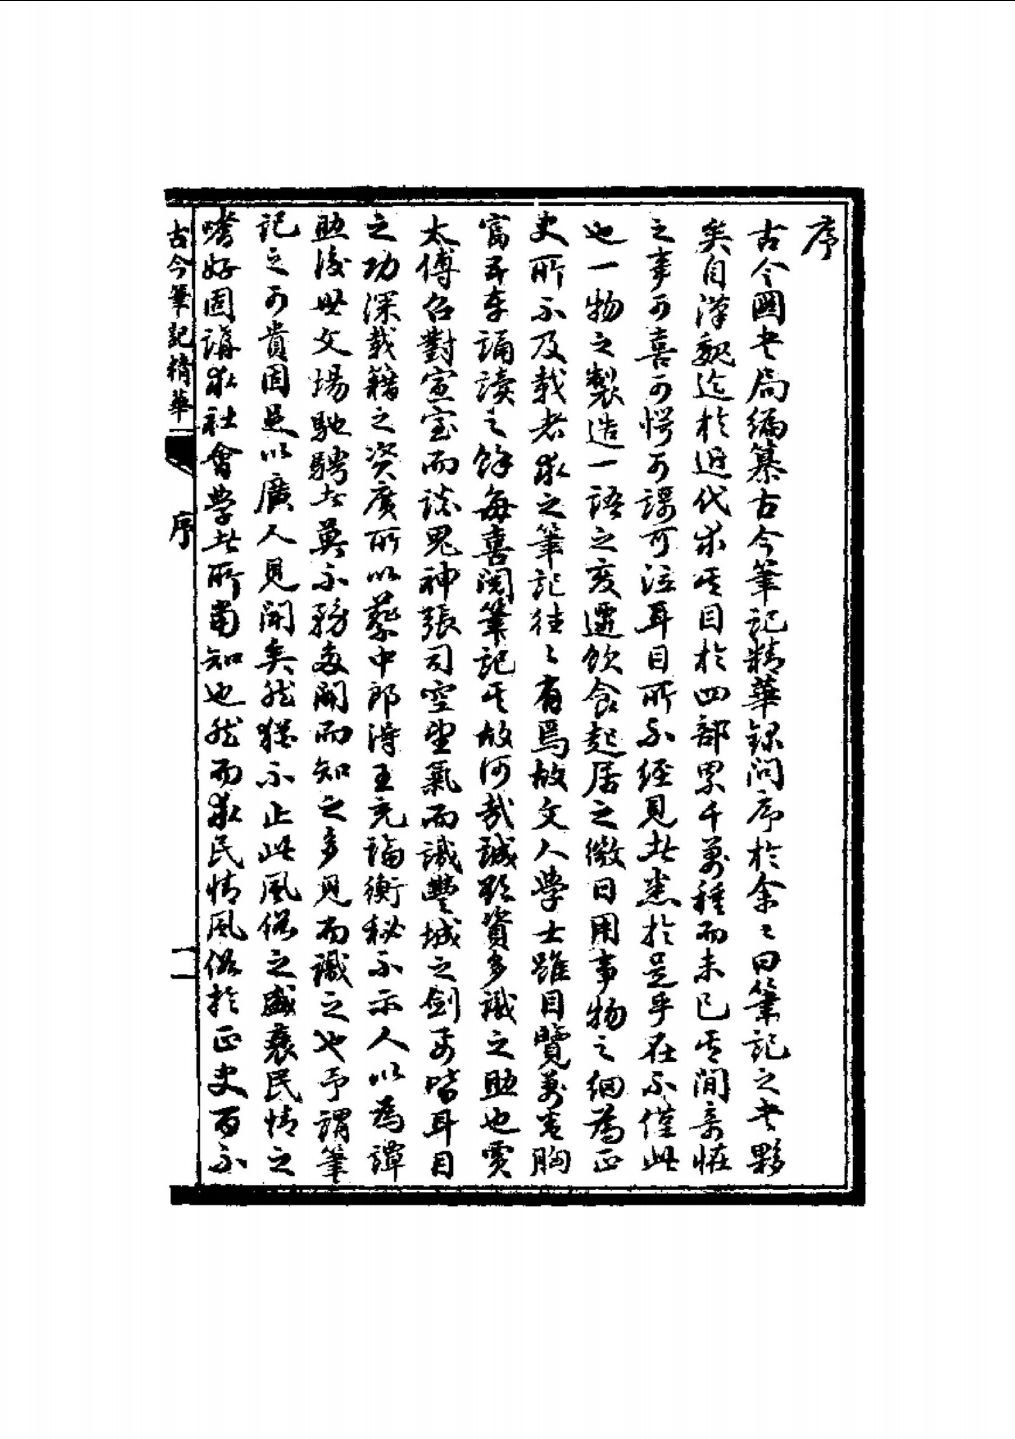 序
古今圖書局編纂古今筆記精華錄問序於余余曰筆記之書夥
矣自漢魏迄於近代求其目於四部累千萬種而未已其間奇怪
之事可喜可愕可謔可泣耳目所不經見者悉於是乎在不僅此
也一物之製造一語之變遷飲食起居之微日用事物之細為正
史所不及載者求之筆記往々有焉故文人學士雖目覽萬卷胸
富五車誦讀之餘每喜閱筆記其故何哉誠欲資多識之助也賈
太傅召對宣室而談鬼神張司空望氣而識豐城之劍豈皆耳目
之功深載籍之資廣所以蔡中郎得王充論衡秘不示人以為譚
助後世文場馳騁者莫不務多聞而知之多見而識之也予謂筆
記之可貴固足以廣人見聞矣然猶不止此風俗之盛衰民情之
嗜好固講求社會學者所當知也然而求民情風俗於正史百不
古今筆記精華 序 一